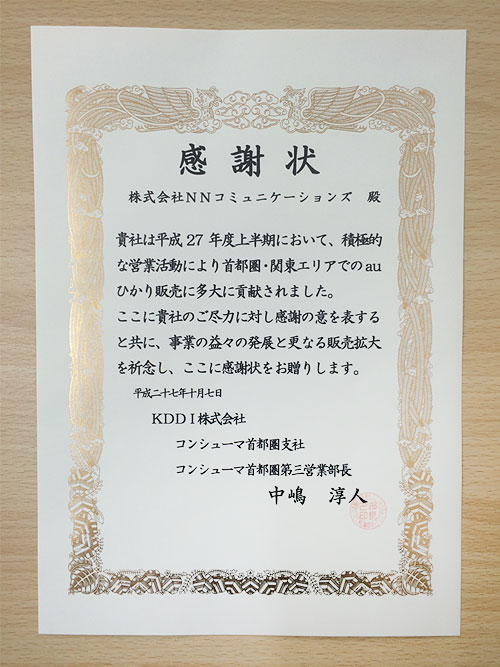 感謝状
株式会社NNコミュニケーションズ 殿
貴社は平成27年度上半期において、積極的
な営業活動により首都圏・関東エリアでのau
ひかり販売に多大に貢献されました。
ここに貴社のご尽力に対し感謝の意を表する
と共に、事業の益々の発展と更なる販売拡大
を祈念し、ここに感謝状をお贈りします。
平成二十七年十月七日
KDDI株式会社
コンシューマ首都圏支社
コンシューマ首都圏第三営業部長
中嶋 淳人